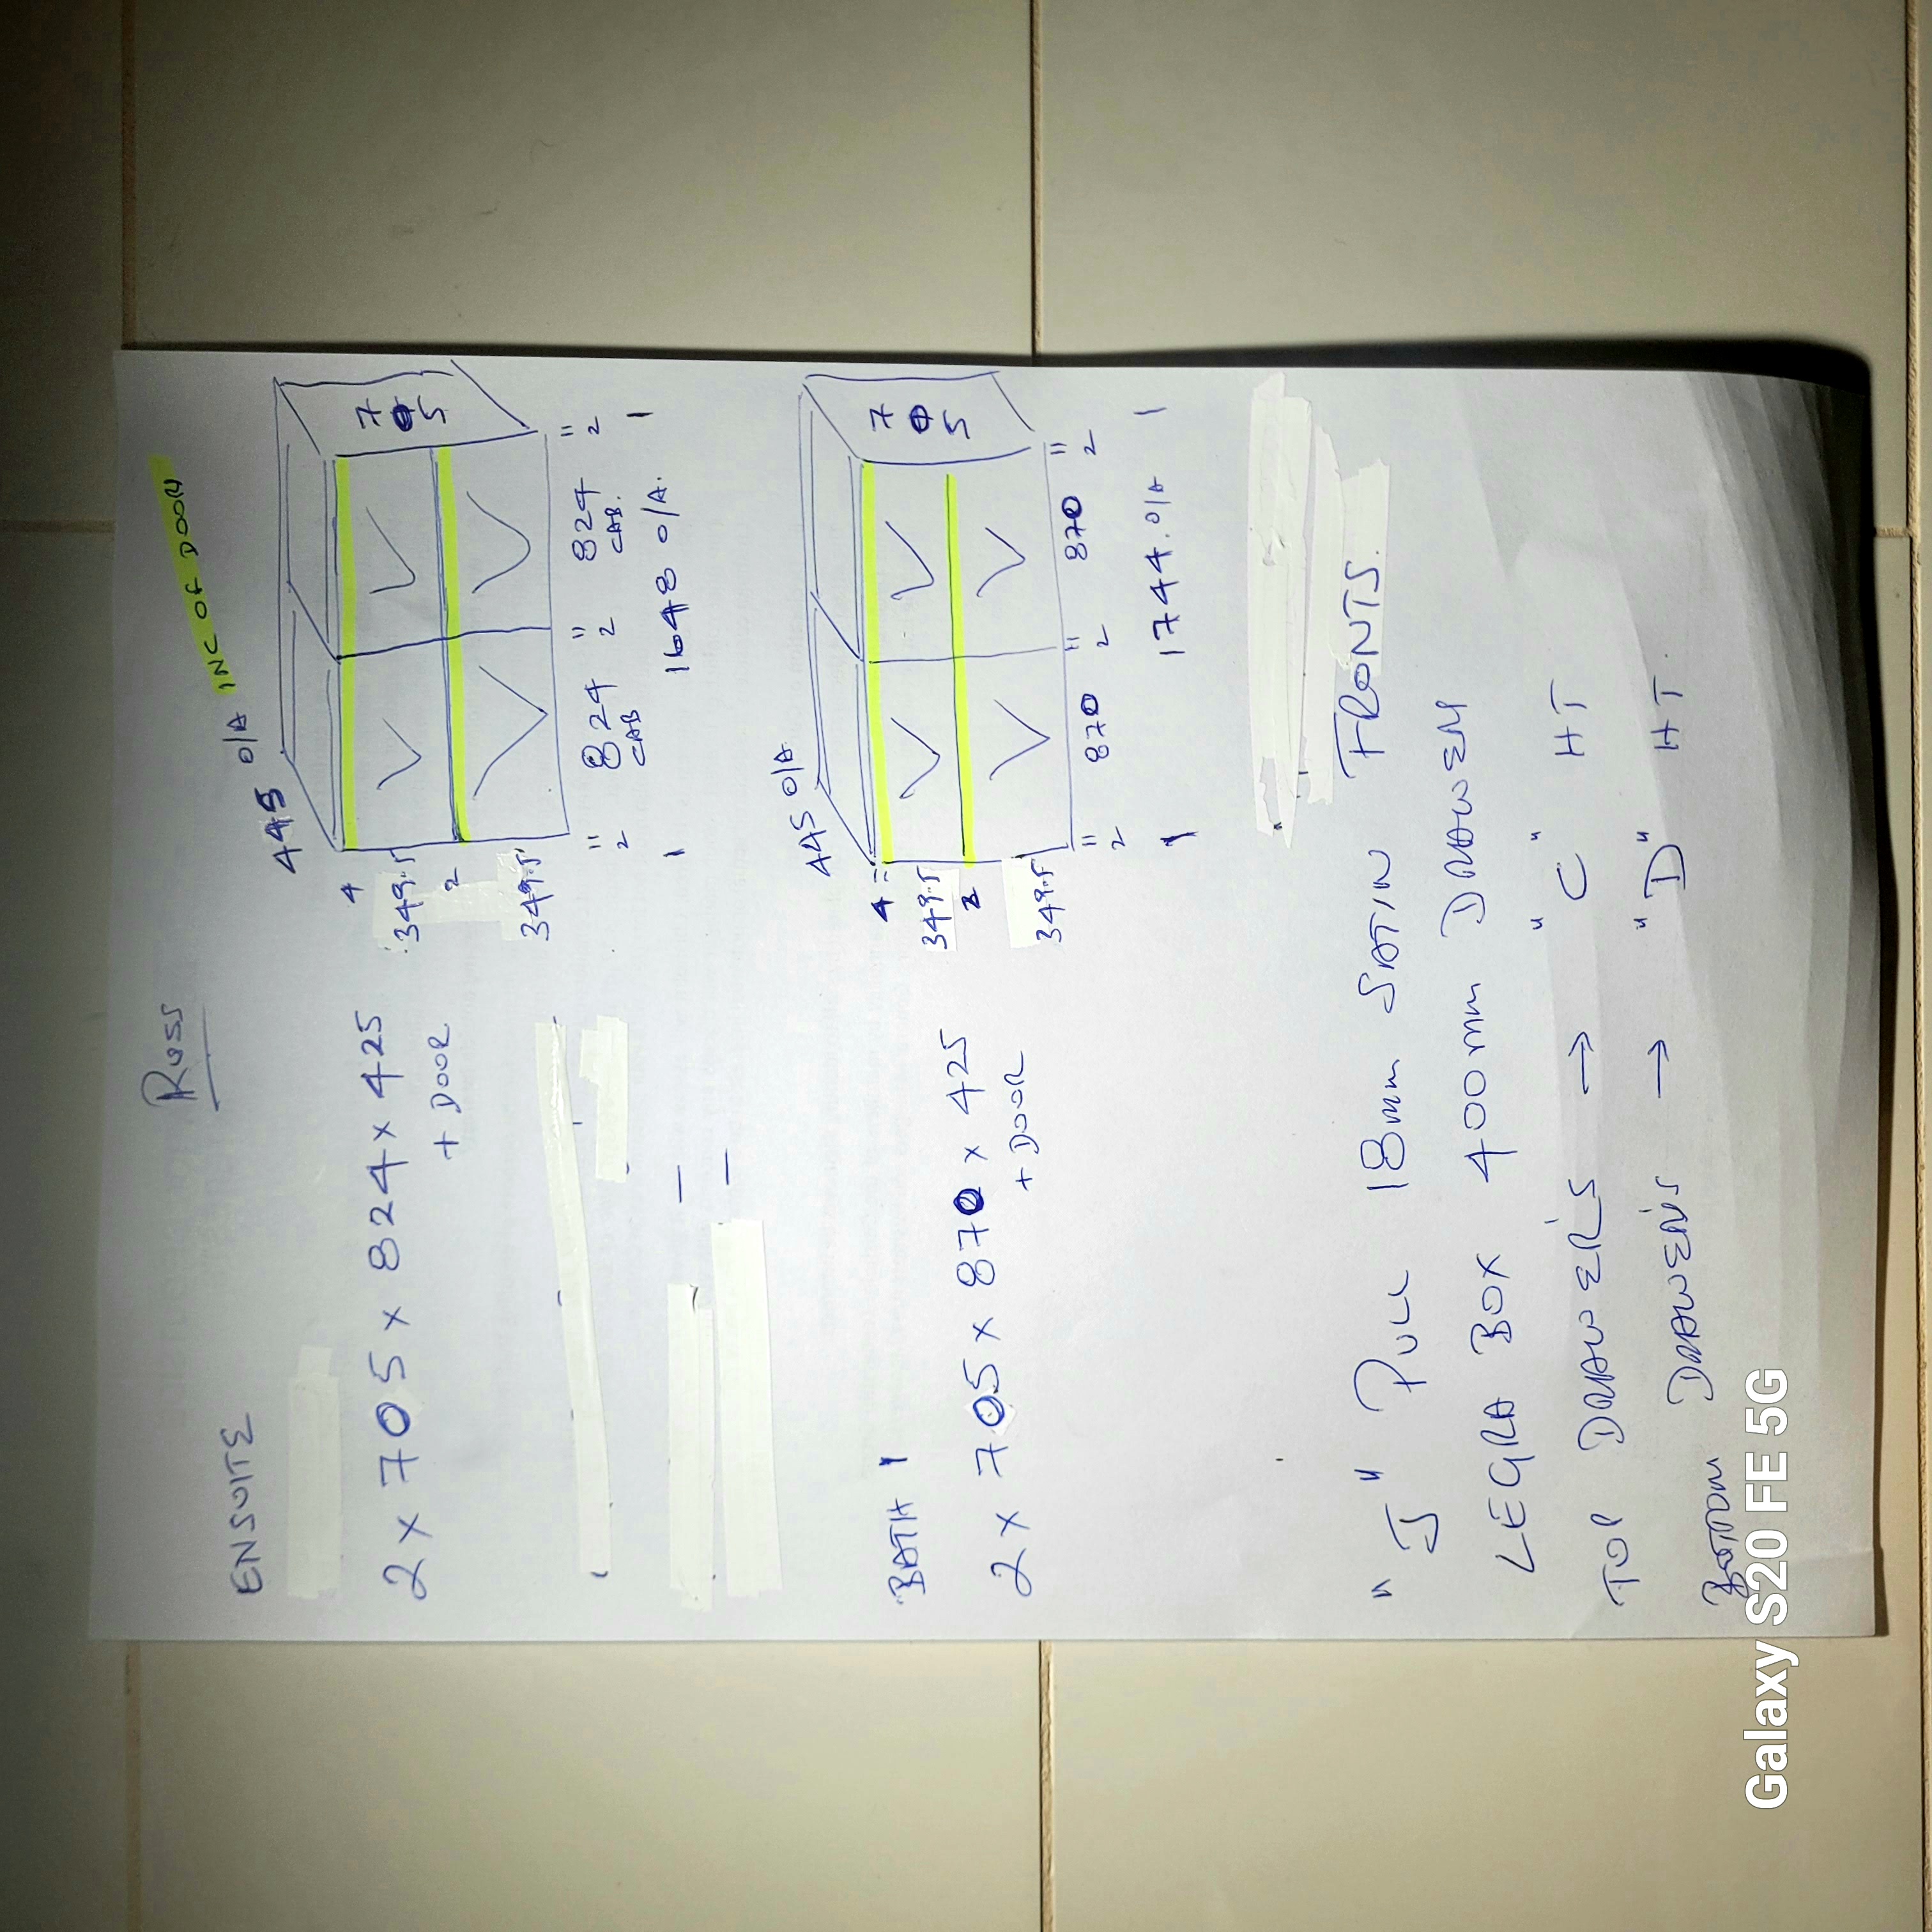 Russ
ENSUITE
2 x 705 x 824 x 425
+ DOOR
445 O/A INC OF DOOR
4
349.5
2
349.5
705
" 824 " 824 "
2 CAB 2 CAB. 2
1648 O/A.
BATH 1
2 x 705 x 870 x 425
+ DOOR
445 O/A
4
349.5
2
349.5
705
" 870 " 870 "
2 2 2
1744. O/A
"J" PULL 18mm SATIN FRONTS.
LEGRA BOX 400mm DRAWER
TOP DRAWER'S → "C" HT
BOTTOM DRAWER'S → "D" HT.
Galaxy S20 FE 5G